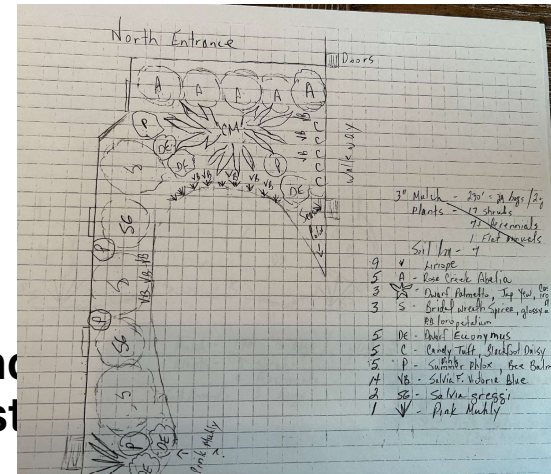 North Entrance
Doors
A A A A A
CM
P
DE
DE
VB
VB
VB
VB
C
C
C
C
C
Walkway
P
DE
S
VB VB VB VB
SG
P
S
VB VB VB
P
SG
S
P
DE
DE
Pink Muhly
3" Mulch - 230' =
Plants - 17 shrubs
Perennials
1 Flat
Soil
9 Liriope
5 A - Rose Creek Abelia
3 - Dwarf Palmetto, Jap Yew,
3 S - Bridal wreath Spirea, glossy
loropetalum
5 DE - Dwarf Euconymus
5 C - Candy Tuft, Blackfoot Daisy
5 P - Summer Pink Phlox, Bee Balm
14 VB - Salvia F. Victoria Blue
2 SG - Salvia greggi
1 - Pink Muhly